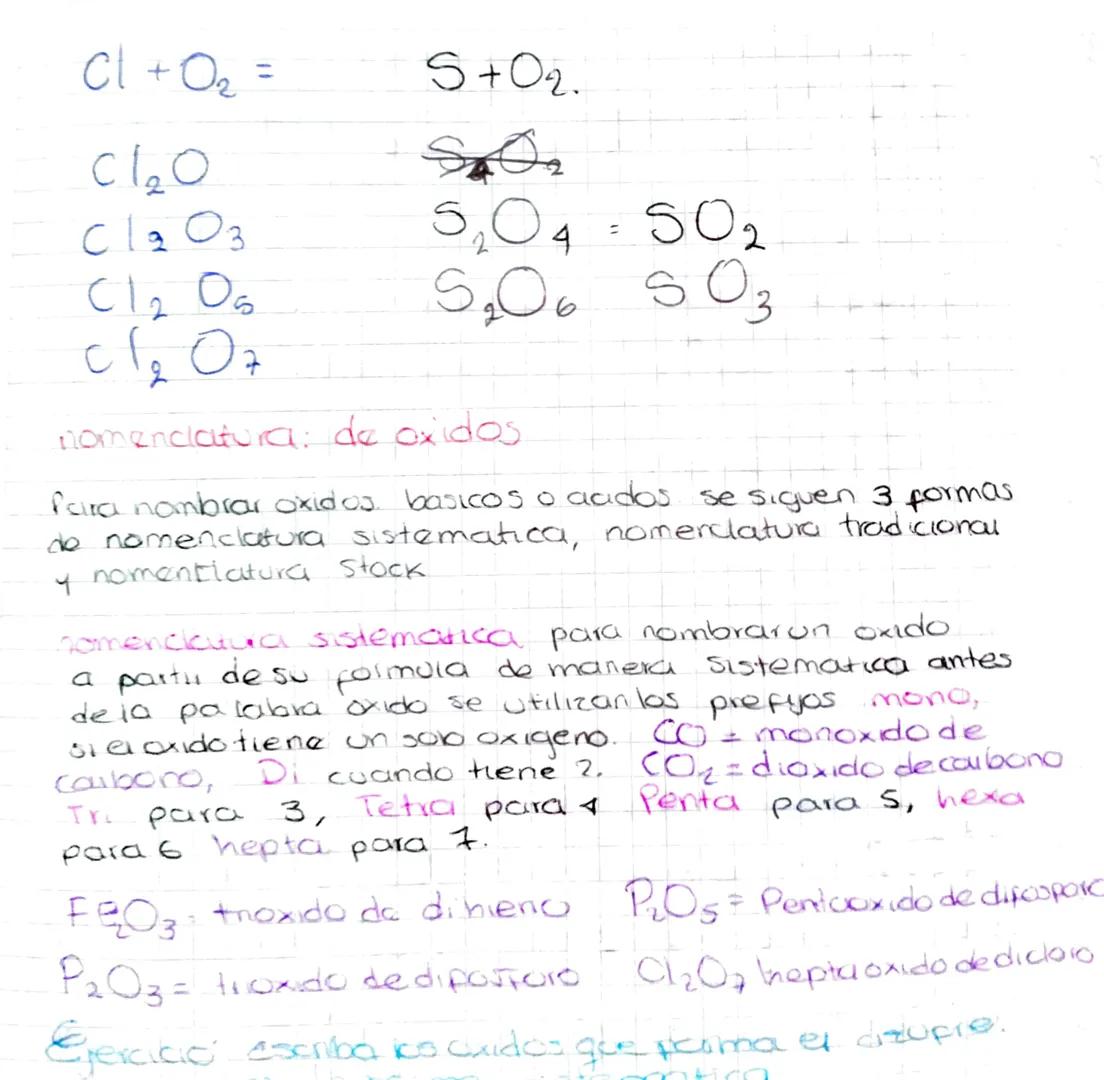 Cl + O2 = S + O2.
Cl2O
Cl2O3 S2O4 = SO2
Cl2O5 S2O6 SO3
Cl2O7
nomenclatura: de oxidos
Para nombrar oxidos basicos o acidos se siguen 3 formas
de nomenclatura sistematica, nomenclatura tradicional
y nomenclatura Stock
nomenclatura sistematica para nombrar un oxido
a partir de su formula de manera sistematica antes
de la palabra oxido se utilizan los prefijos mono,
si el oxido tiene un solo oxigeno. CO = monoxido de
carbono, Di cuando tiene 2. CO2 = dioxido de carbono
Tri para 3, Tetra para 4 Penta para 5, hexa
para 6 hepta para 7.
Fe2O3 = trioxido de dihierro P2O5 = Pentaoxido de difosforo
P2O3 = trioxido de difosforo Cl2O7 heptaoxido de dicloro
Ejercicio escriba los oxidos que forma el azufre.